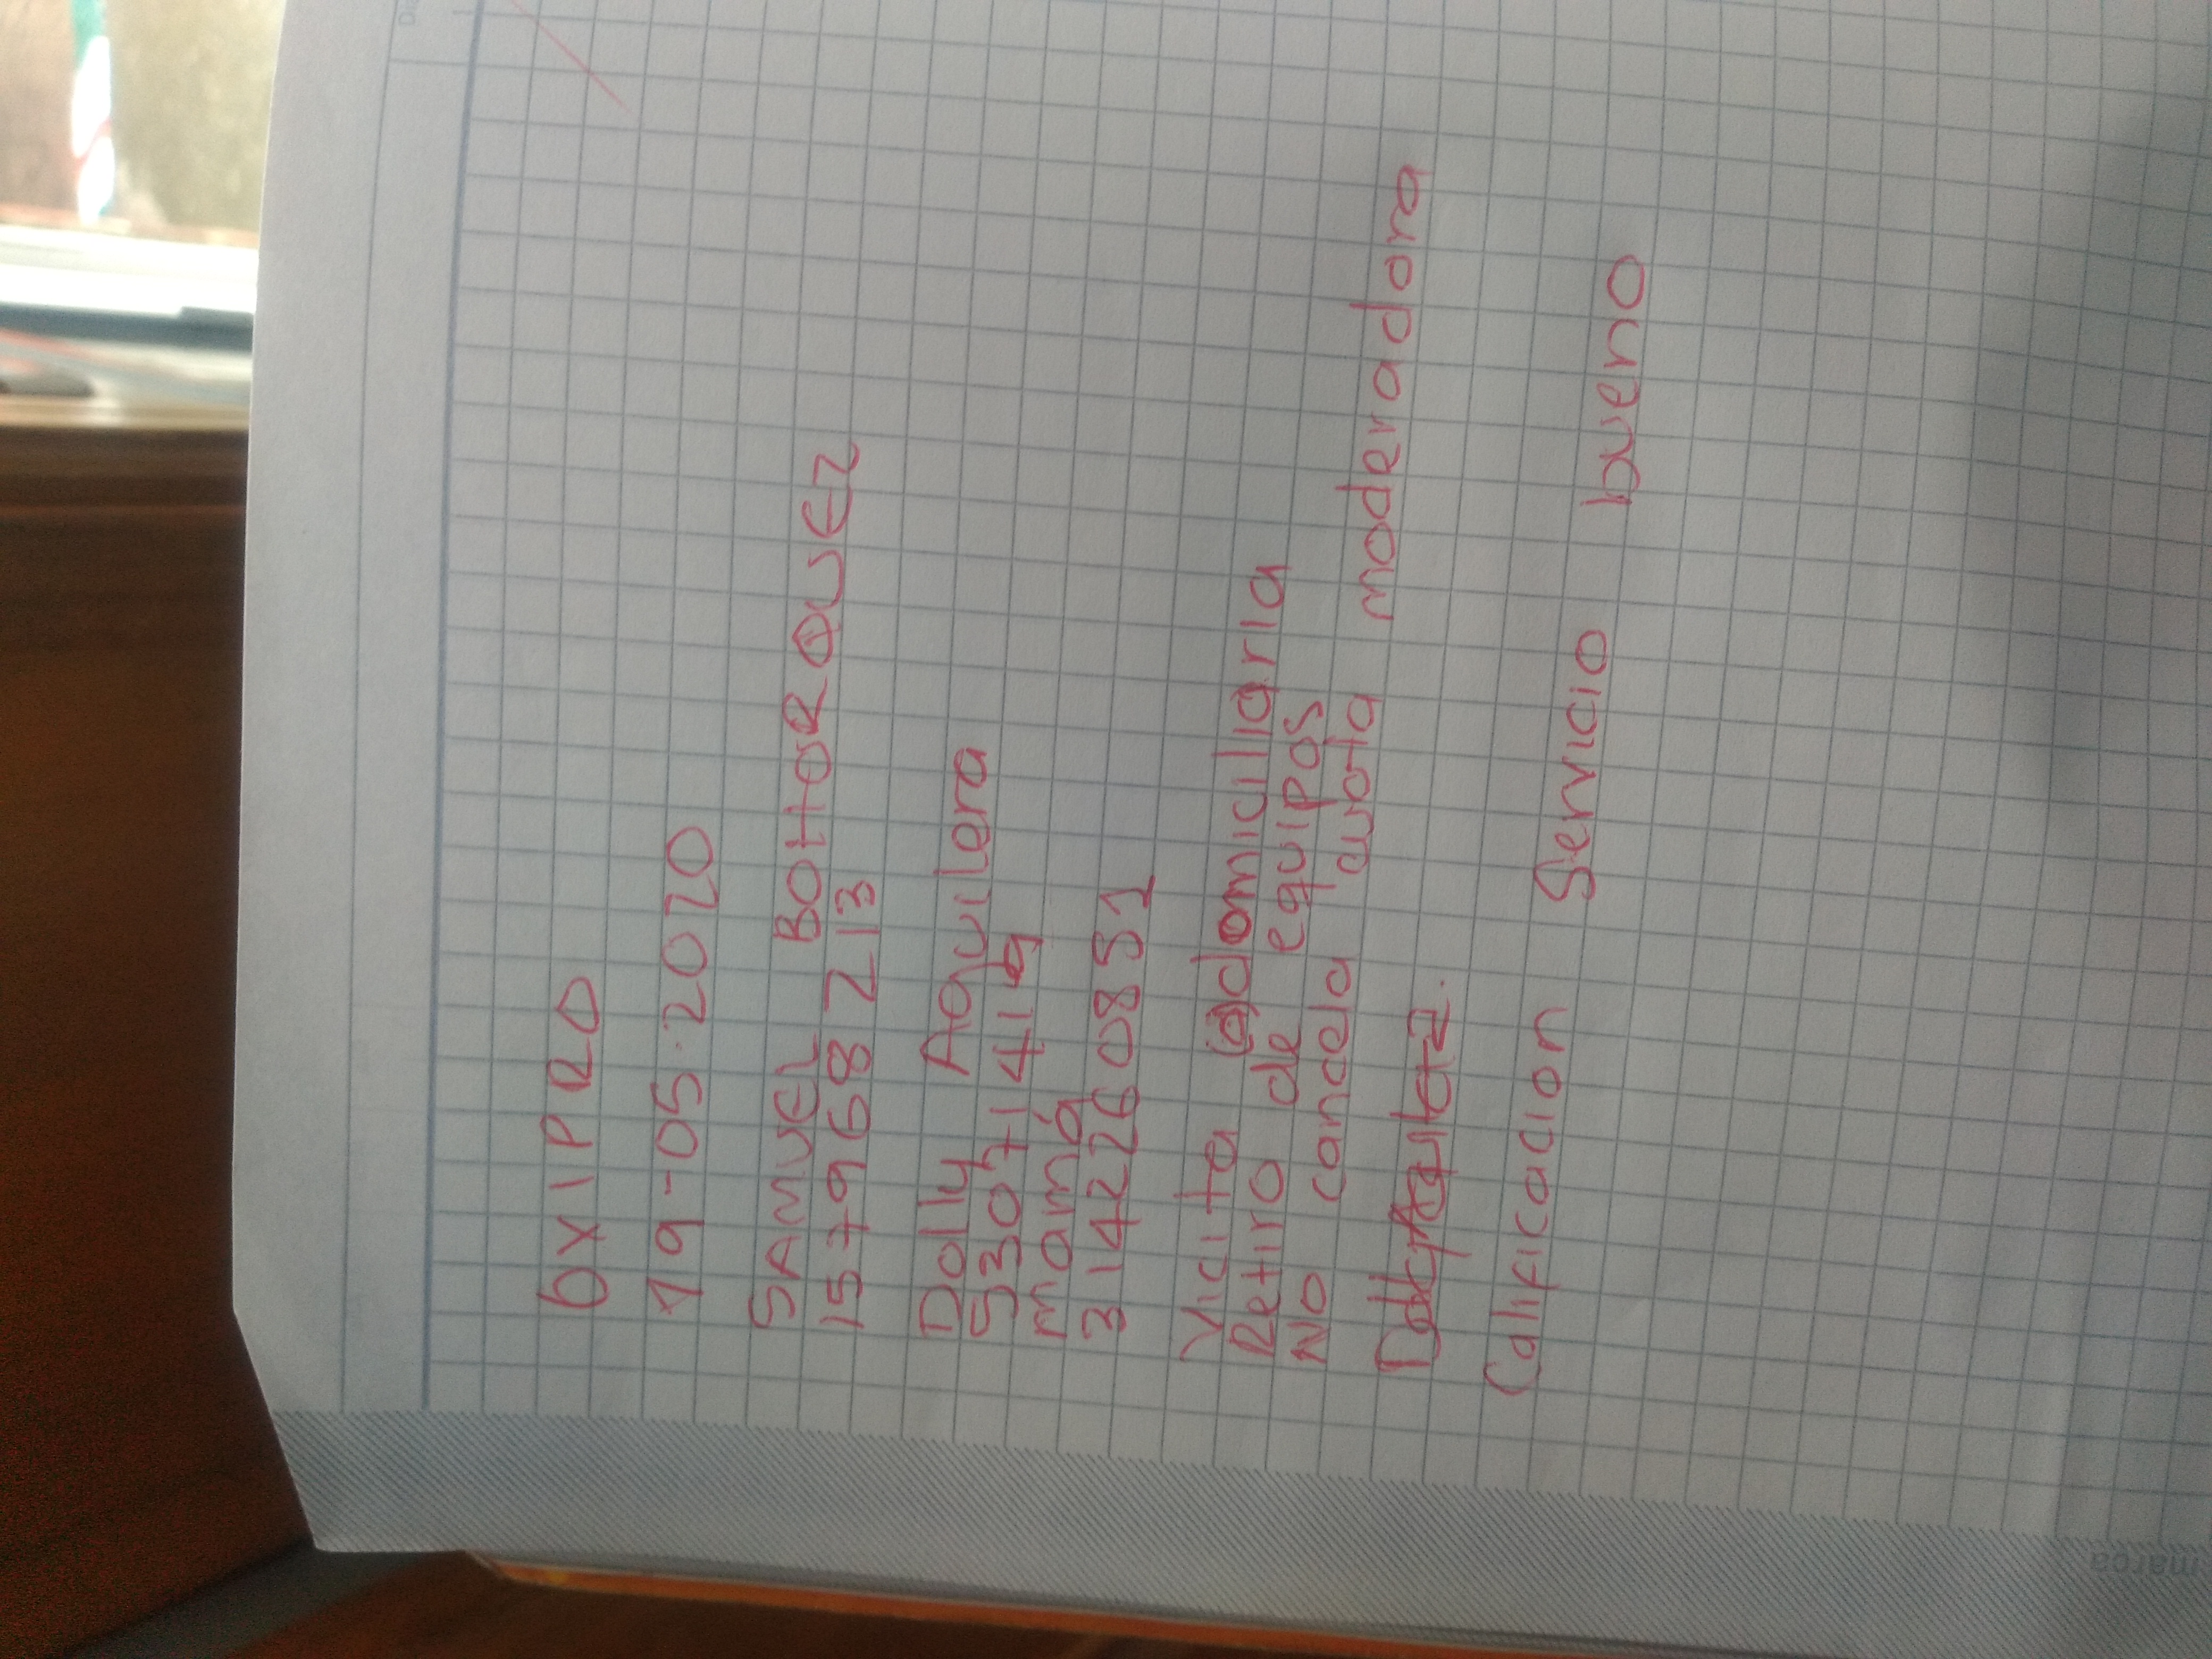 OXIPRO
19-05-2020
SAMUEL BOHORQUEZ
1579687213
Dolly Aguilera
mamá
3142260851
Vicita domiciliaria
Retiro de equipos
No cancela cuota moderadora
Calificacion Servicio bueno
marca